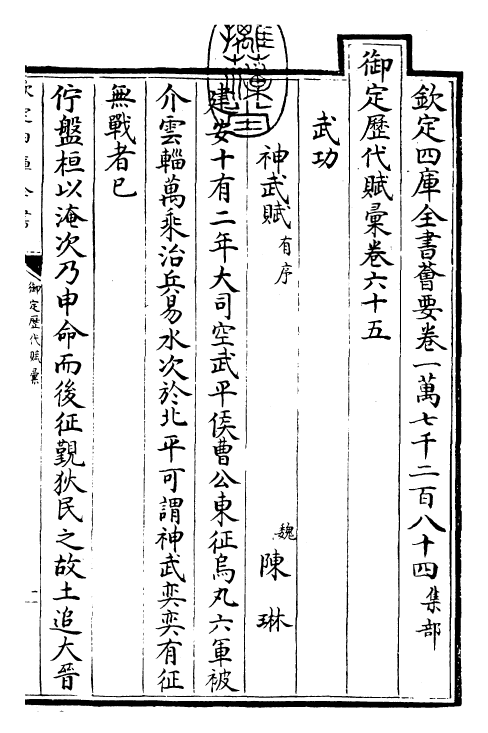 欽定四庫全書薈要卷一萬七千二百八十四集部
御定歷代賦彙卷六十五
武功
神武賦有序
魏陳琳
建安十有二年大司空武平侯曹公東征烏丸六軍被
介雲輜萬乘治兵易水次於北平可謂神武奕奕有征
無戰者已
佇盤桓以淹次乃申命而後征覲狄民之故土追大晉
御定歷代賦彙